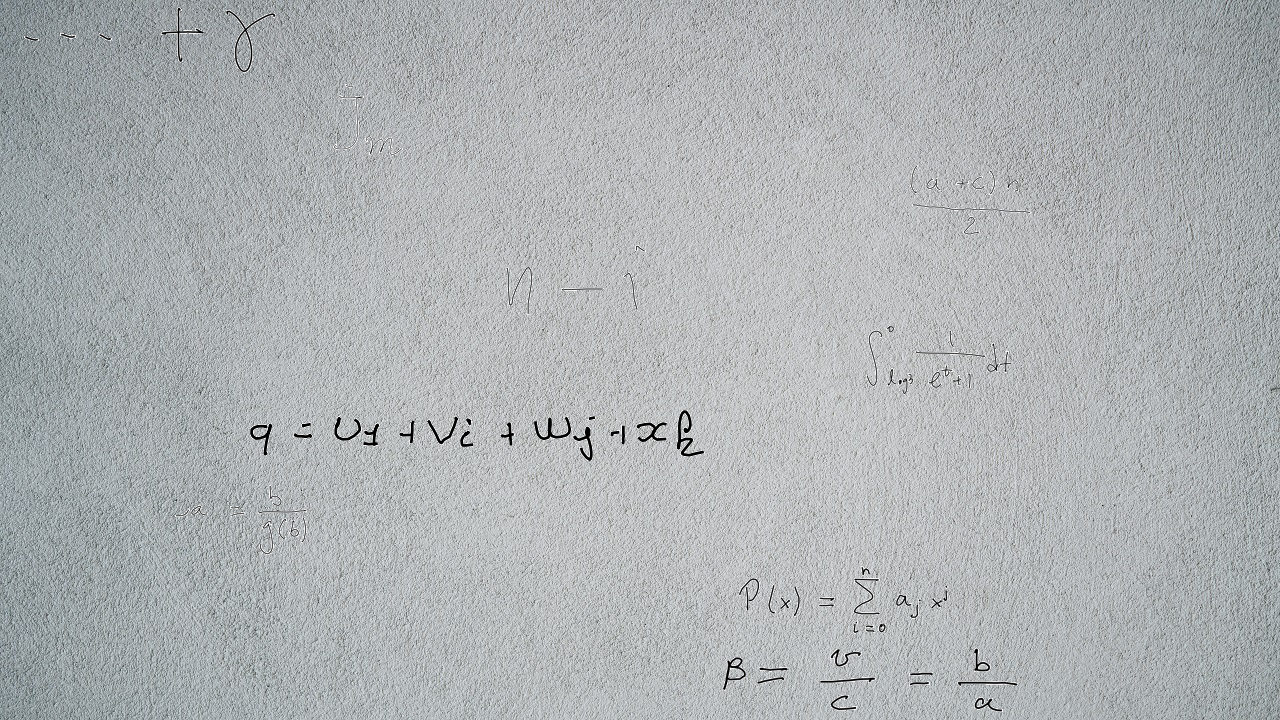 --- + γ
J_m
\frac{(a+c)n}{2}
n - i
\int_{\log 3}^{0} \frac{1}{e^t+1} dt
q = u1 + vi + wj + xk
-a = \frac{b}{g(b)}
P(x) = \sum_{i=0}^{n} a_j x^j
β = \frac{v}{c} = \frac{b}{a}